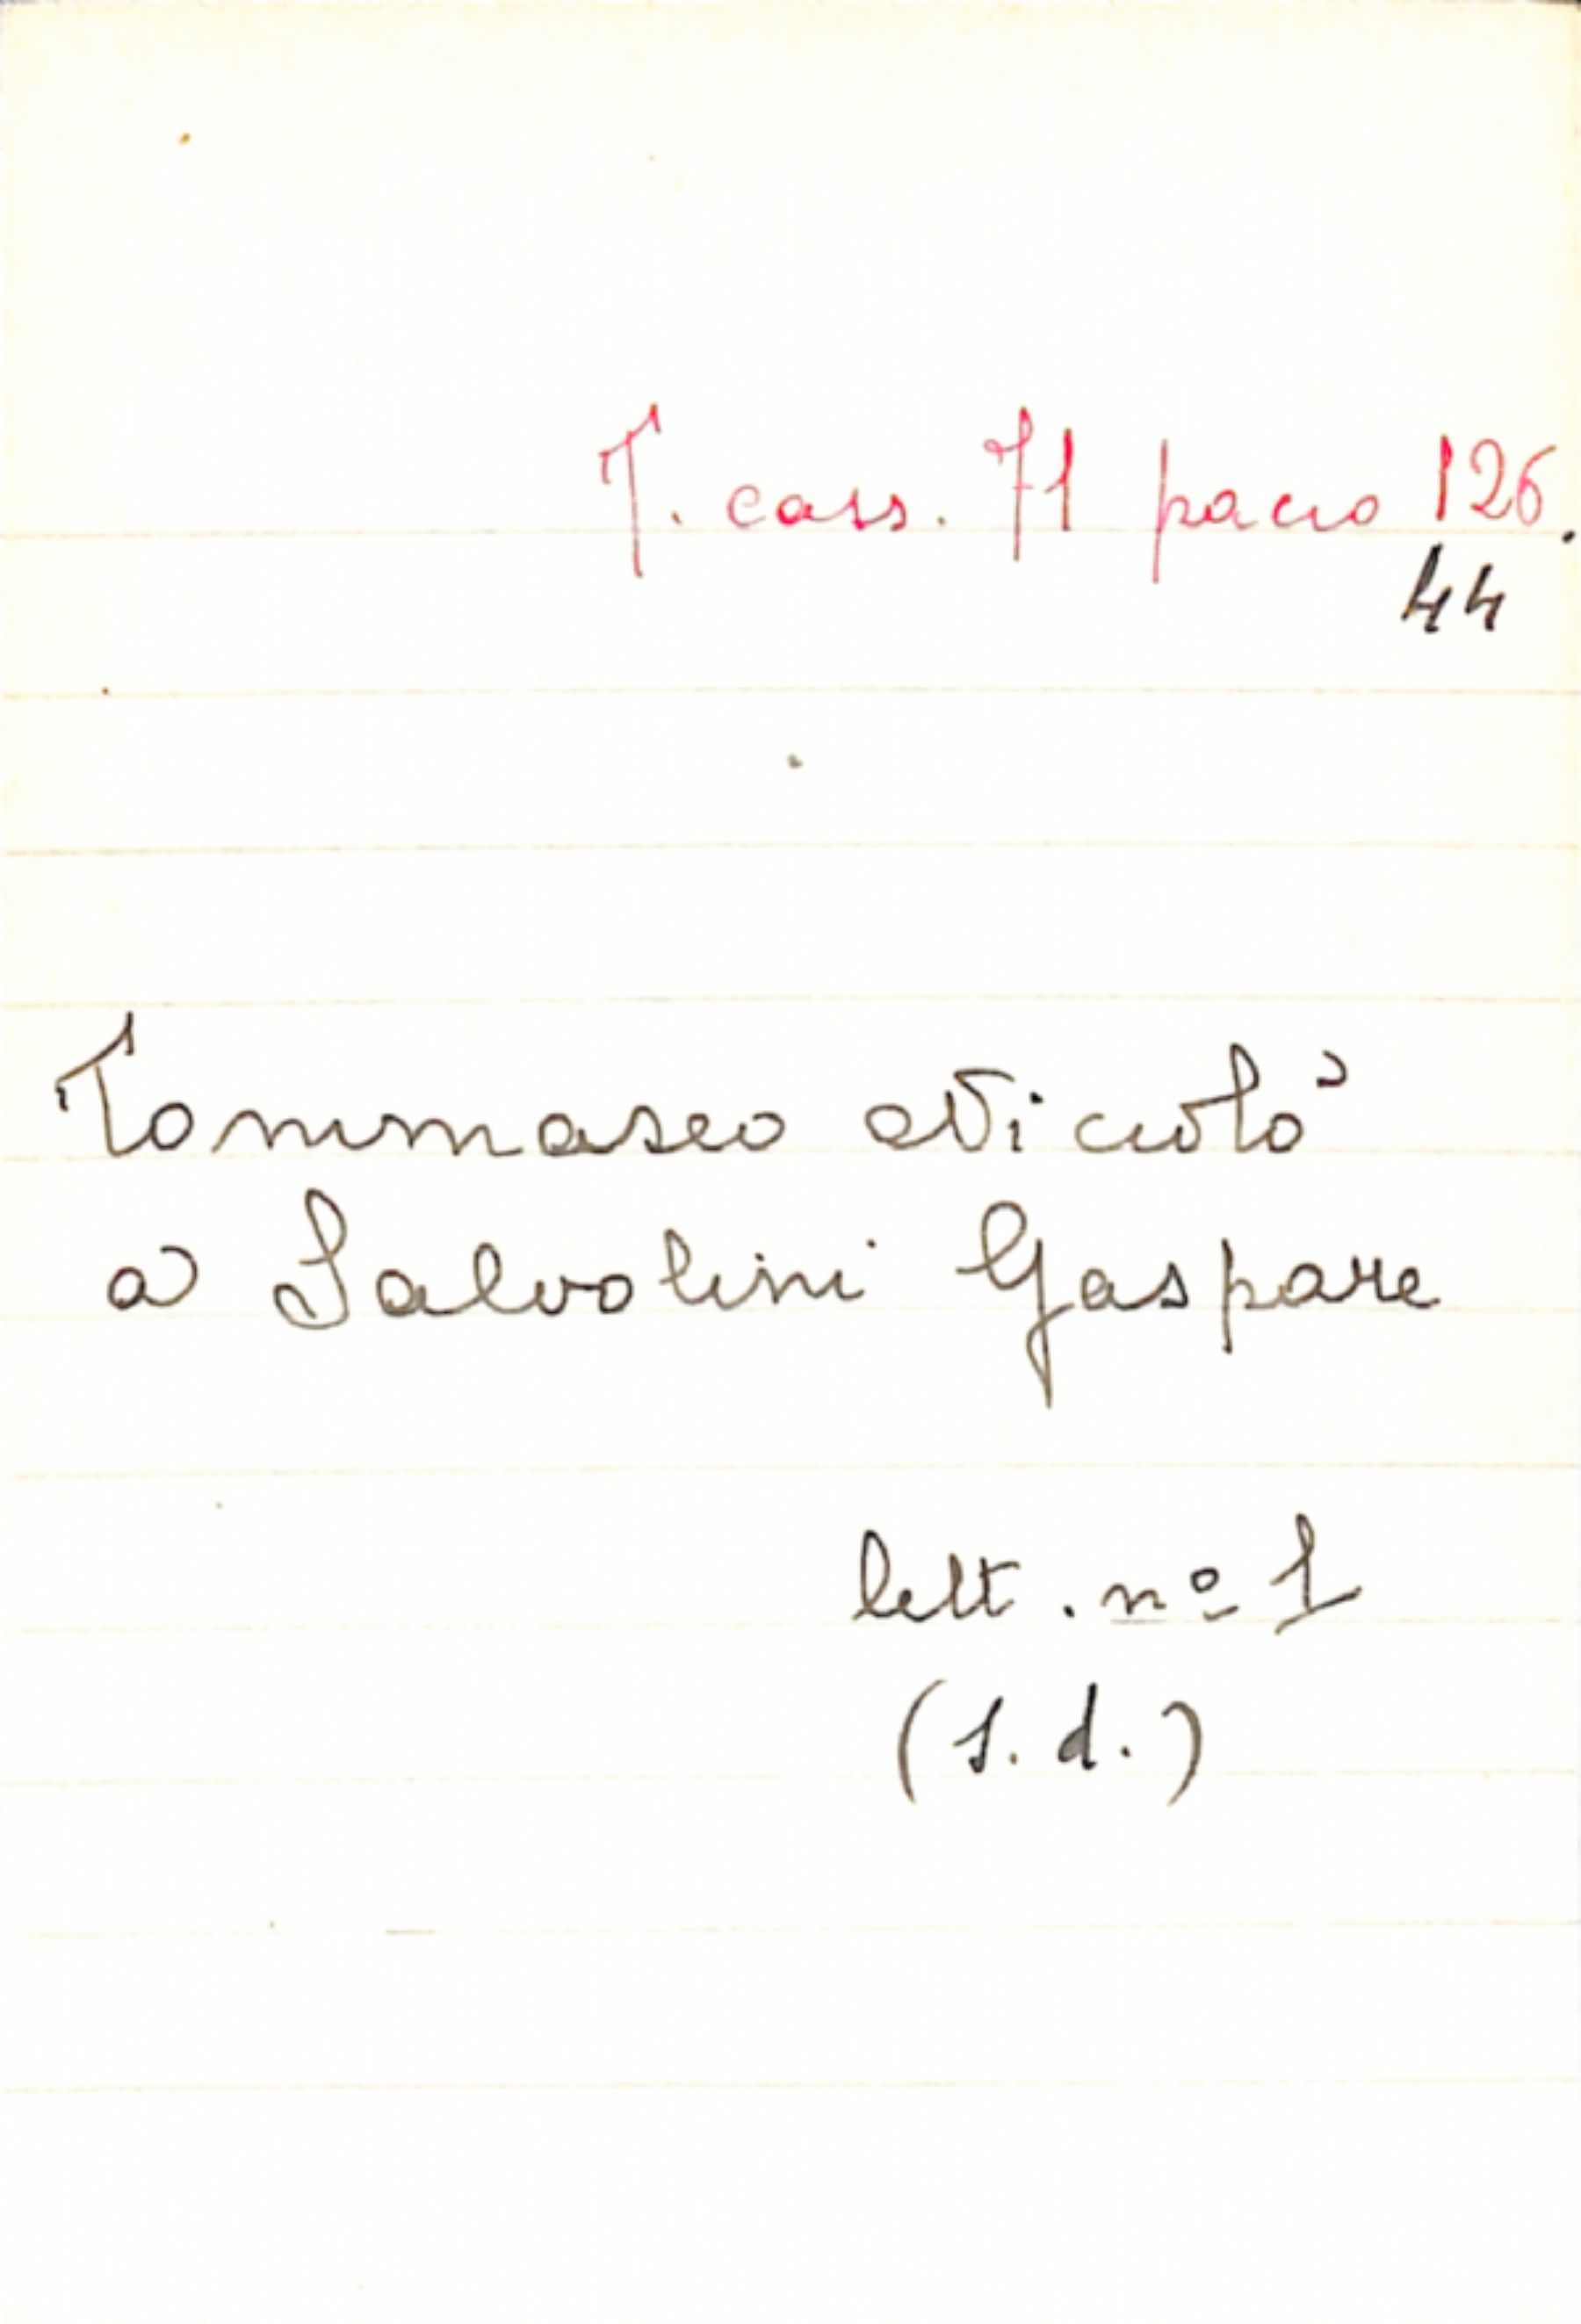 T. cass. 71 pacco 126.
44
Tommaseo Niccolò
a Salvolini Gaspare
lett. nº 1
(s. d.)